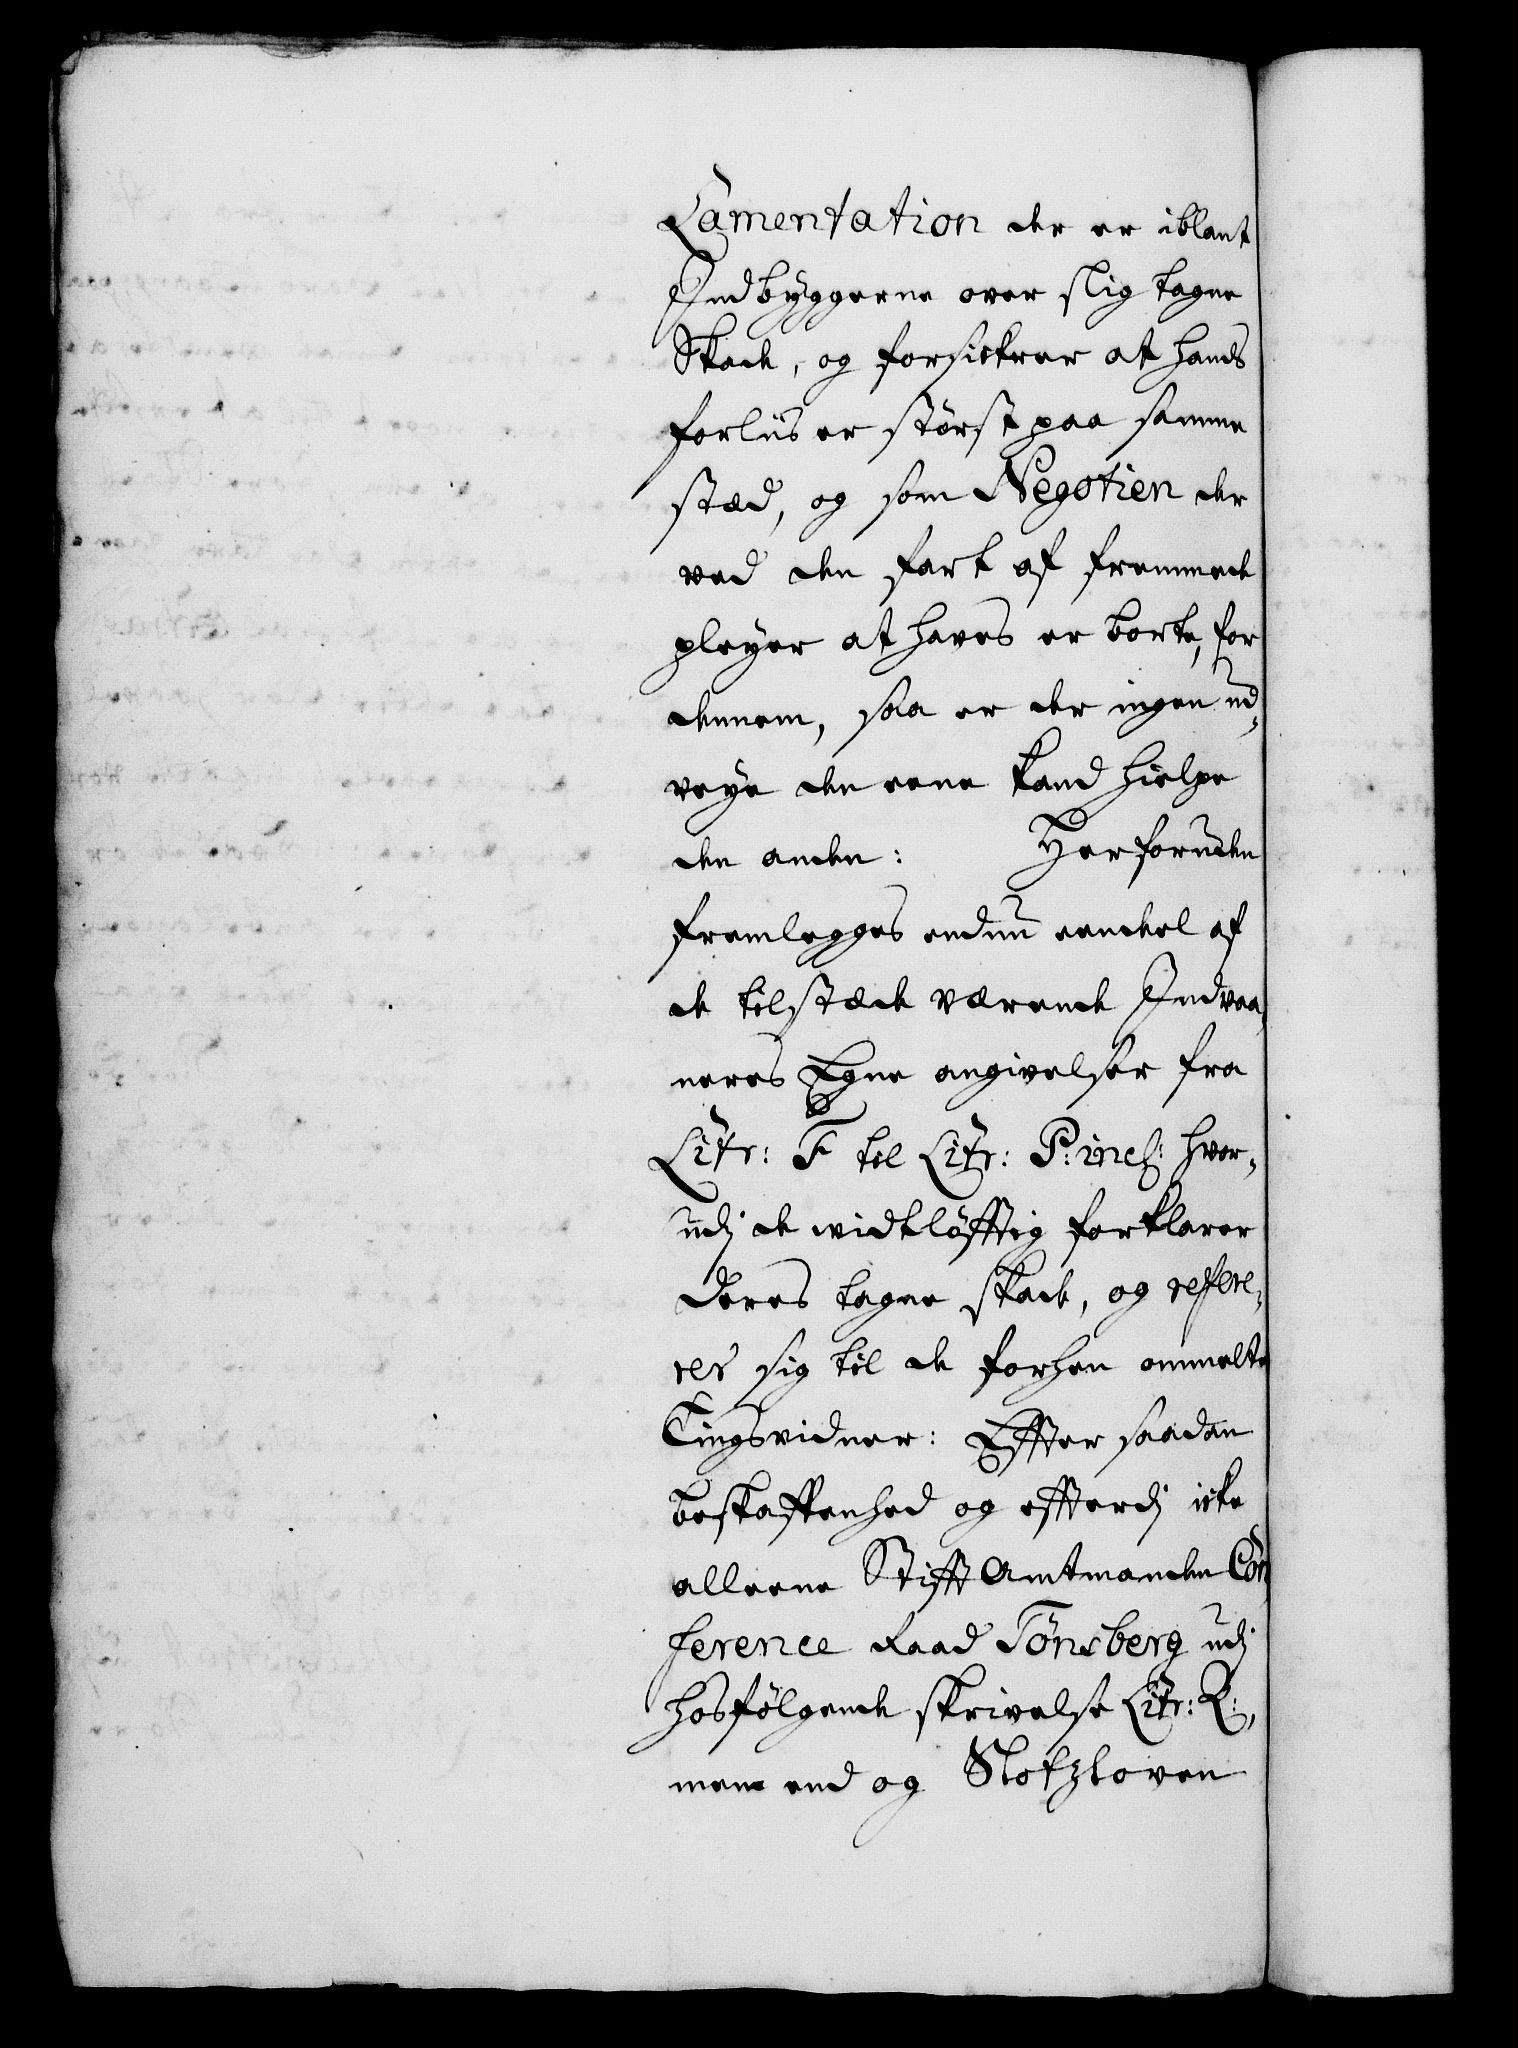 Lamentation der er iblant
Indbyggerne over slig tagne
Skade, og forsickrer at hands
forliis er størst paa samme
stæd, og som Negotien der
ved den fart af fremmede
pleyer at haves er borte, for
dennem, saa er der ingen ud¬
veye den eene kand hielpe
den anden: Herforuden
fremlegges endnu eendel af
de tilstæde værende Indvaa¬
neres Egne angivelser fra
Litr: F til Litr: P: incl: hvor¬
udj de widtløfftig forklarer
deres tagne skade, og refere¬
rer sig til de forhen ommelte
Tingsvidner: Effter saadan
beskaffenhed og effterdj icke
alleene Stifft Amtmanden Con¬
ference Raad Tønsberg udj
hosfølgende skrivelse Litr: Q:,
mens end og Slotzloven